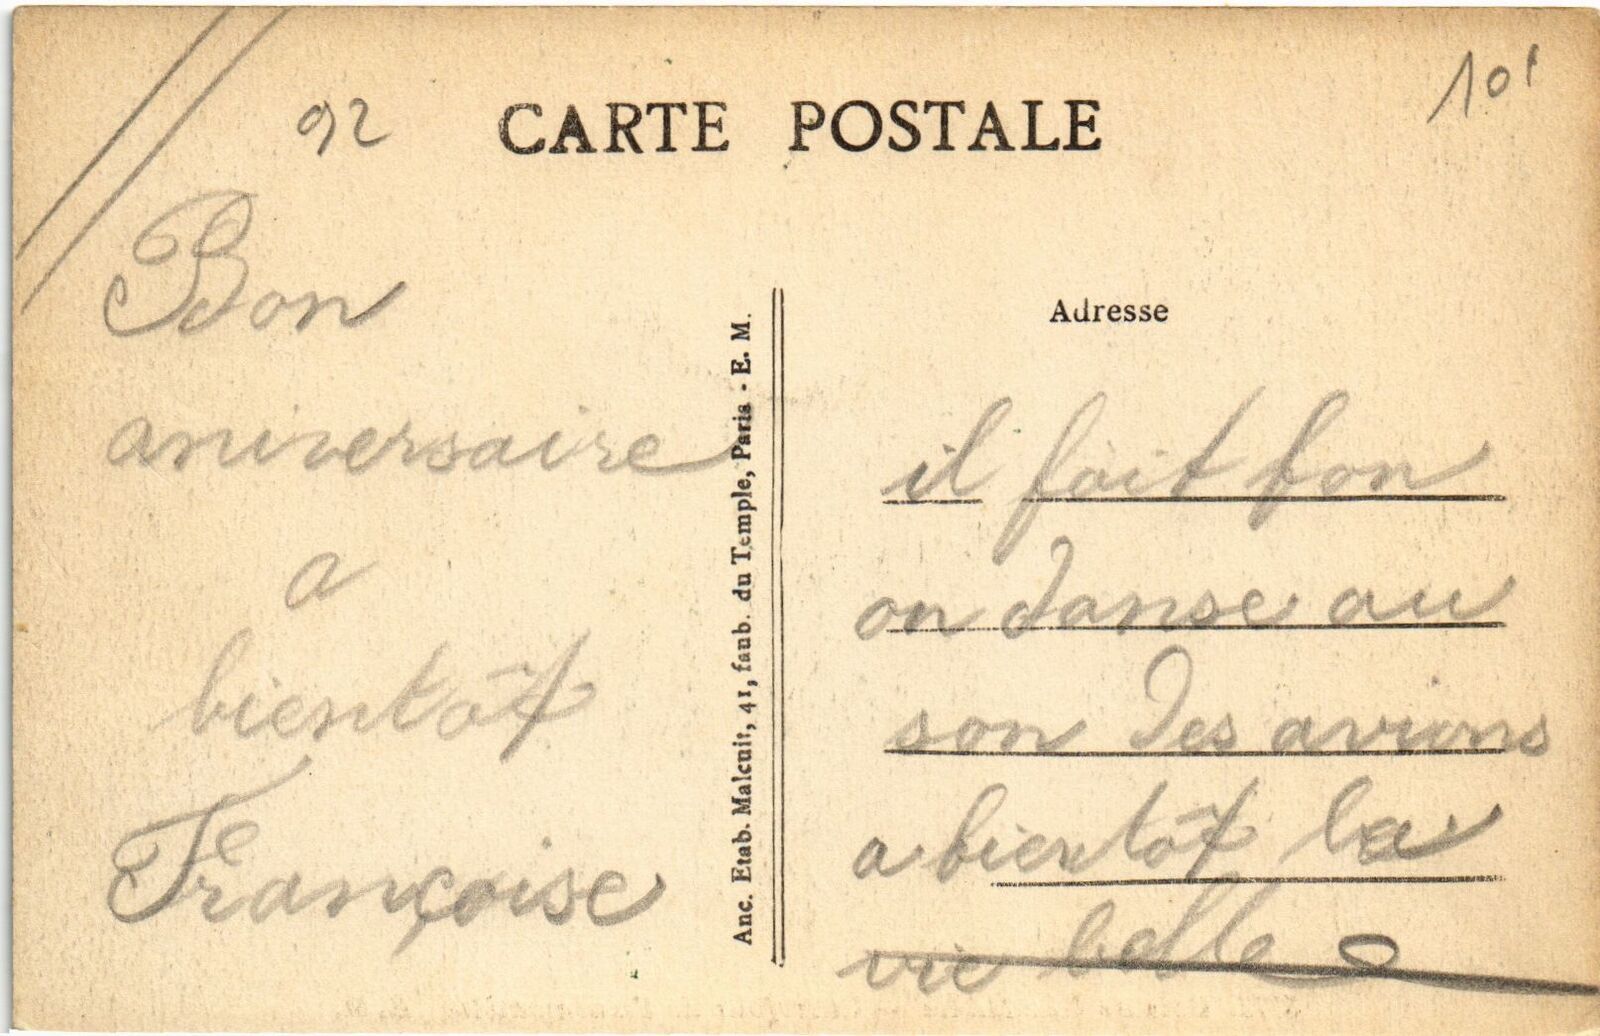 92
CARTE POSTALE
10f
Bon
aniversaire
a
bientôt
Françoise
Anc. Etab. Malcuit, 41, faub. du Temple, Paris - E. M.
Adresse
il fait bon
on danse au
son des avions
a bientôt la
vie belle